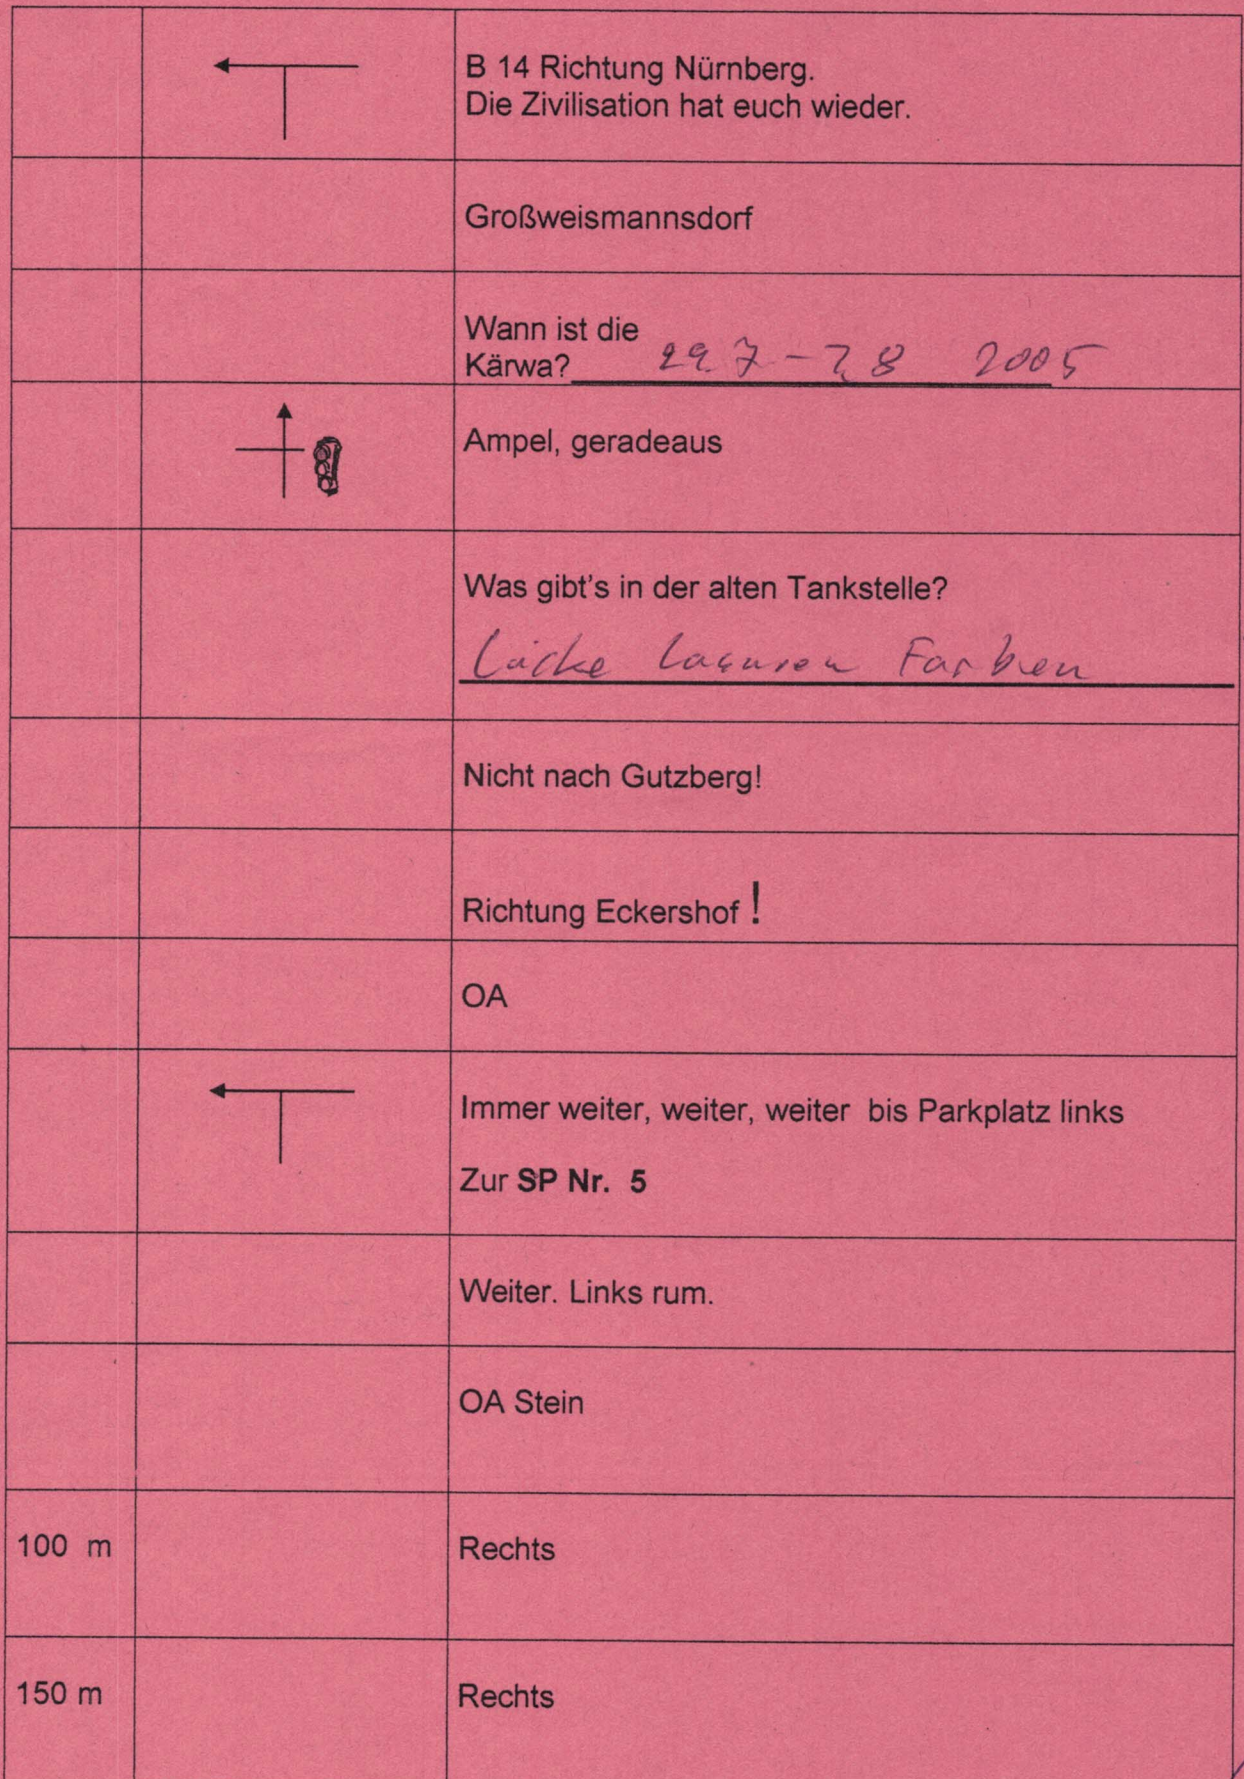 B 14 Richtung Nürnberg.
Die Zivilisation hat euch wieder.
Großweismannsdorf
Wann ist die
Kärwa? 29.7 - 7.8 2005
Ampel, geradeaus
Was gibt's in der alten Tankstelle?
Lacke Lasuren Farben
Nicht nach Gutzberg!
Richtung Eckershof !
OA
Immer weiter, weiter, weiter bis Parkplatz links
Zur SP Nr. 5
Weiter. Links rum.
OA Stein
100 m Rechts
150 m Rechts